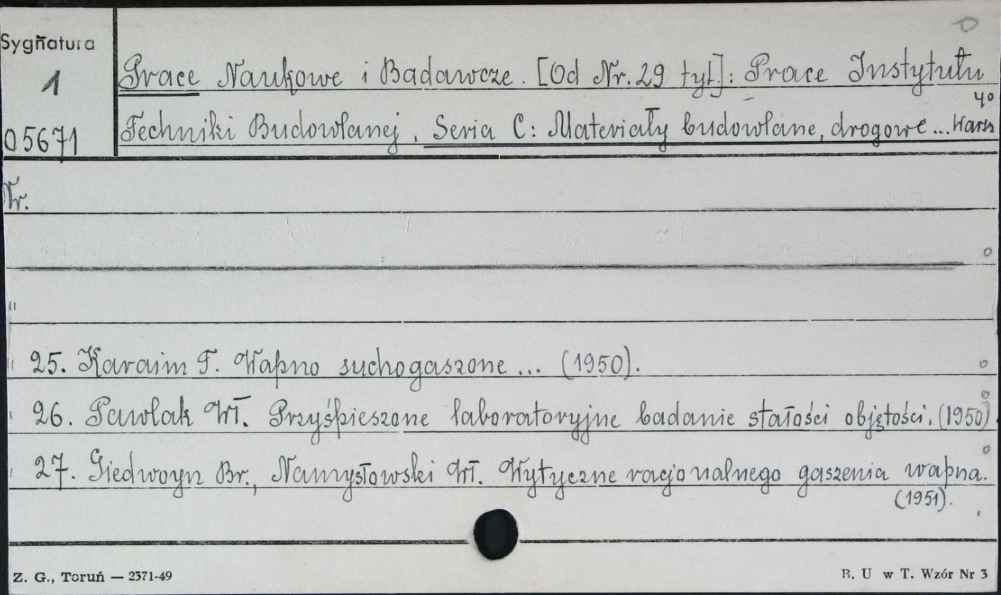 Sygñatura
1
05671
Prace Naukowe i Badawcze. [Od Nr. 29 tyt]: Prace Instytutu
4°
Techniki Budowlanej. Seria C: Materiały budowlane, drogowe ... Wars
Nr.
"
" 25. Karaim F. Wapno suchogaszone ... (1950).
" 26. Pawlak Wł. Przyśpieszone laboratoryjne badanie stałości objętości. (1950)
" 27. Giedwoyn Br., Namysłowski Wł. Wytyczne racjonalnego gaszenia wapna.
(1951).
Z. G., Toruń — 2371-49
B. U w T. Wzór Nr 3